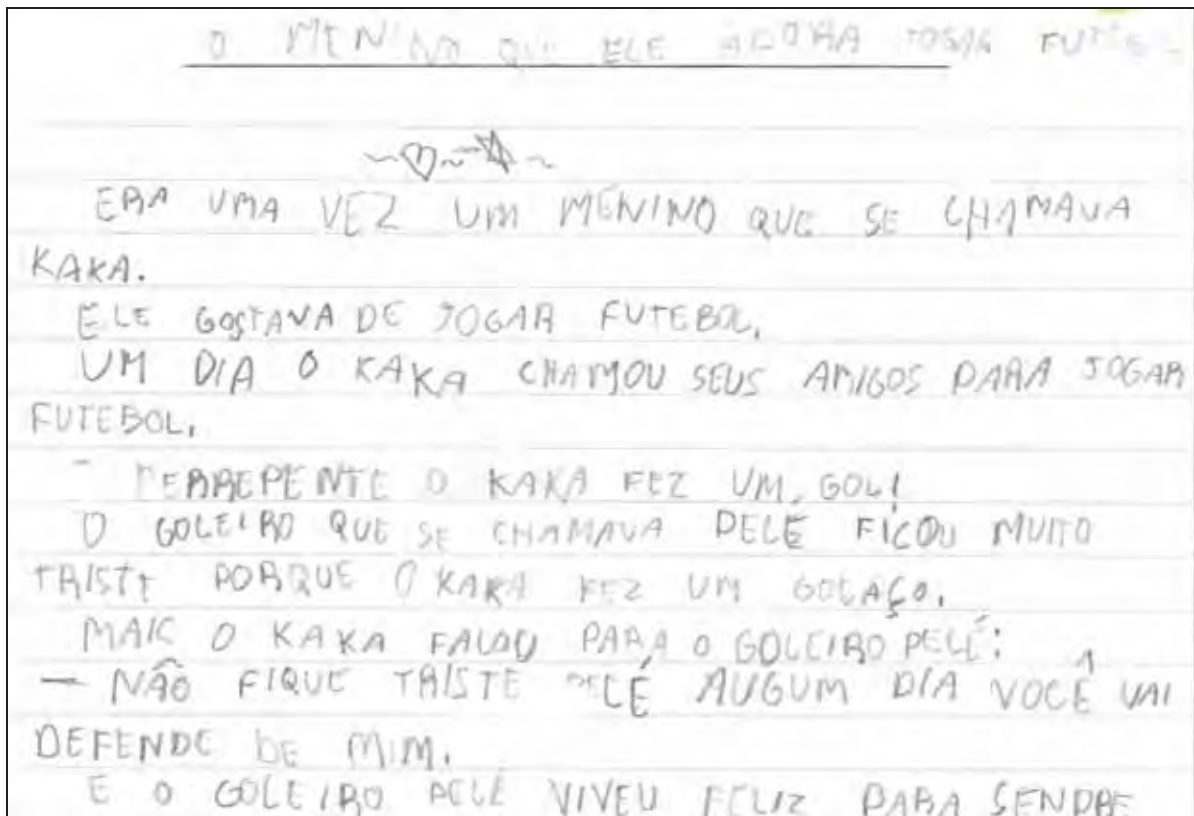 O MENINO QUE ELE ADORA JOGAR
ERA UMA VEZ UM MENINO QUE SE CHAMAVA
KAKA.
ELE GOSTAVA DE JOGAR FUTEBOL.
UM DIA O KAKA CHAMOU SEUS AMIGOS PARA JOGAR
FUTEBOL.
DERREPENTE O KAKA FEZ UM GOL!
O GOLEIRO QUE SE CHAMAVA PELÉ FICOU MUITO
TRISTE PORQUE O KAKA FEZ UM GOLAÇO.
MAIS O KAKA FALOU PARA O GOLEIRO PELÉ:
— NÃO FIQUE TRISTE PELÉ AUGUM DIA VOCÊ VAI
DEFENDE DE MIM.
E O GOLEIRO PELÉ VIVEU FELIZ PARA SENPRE